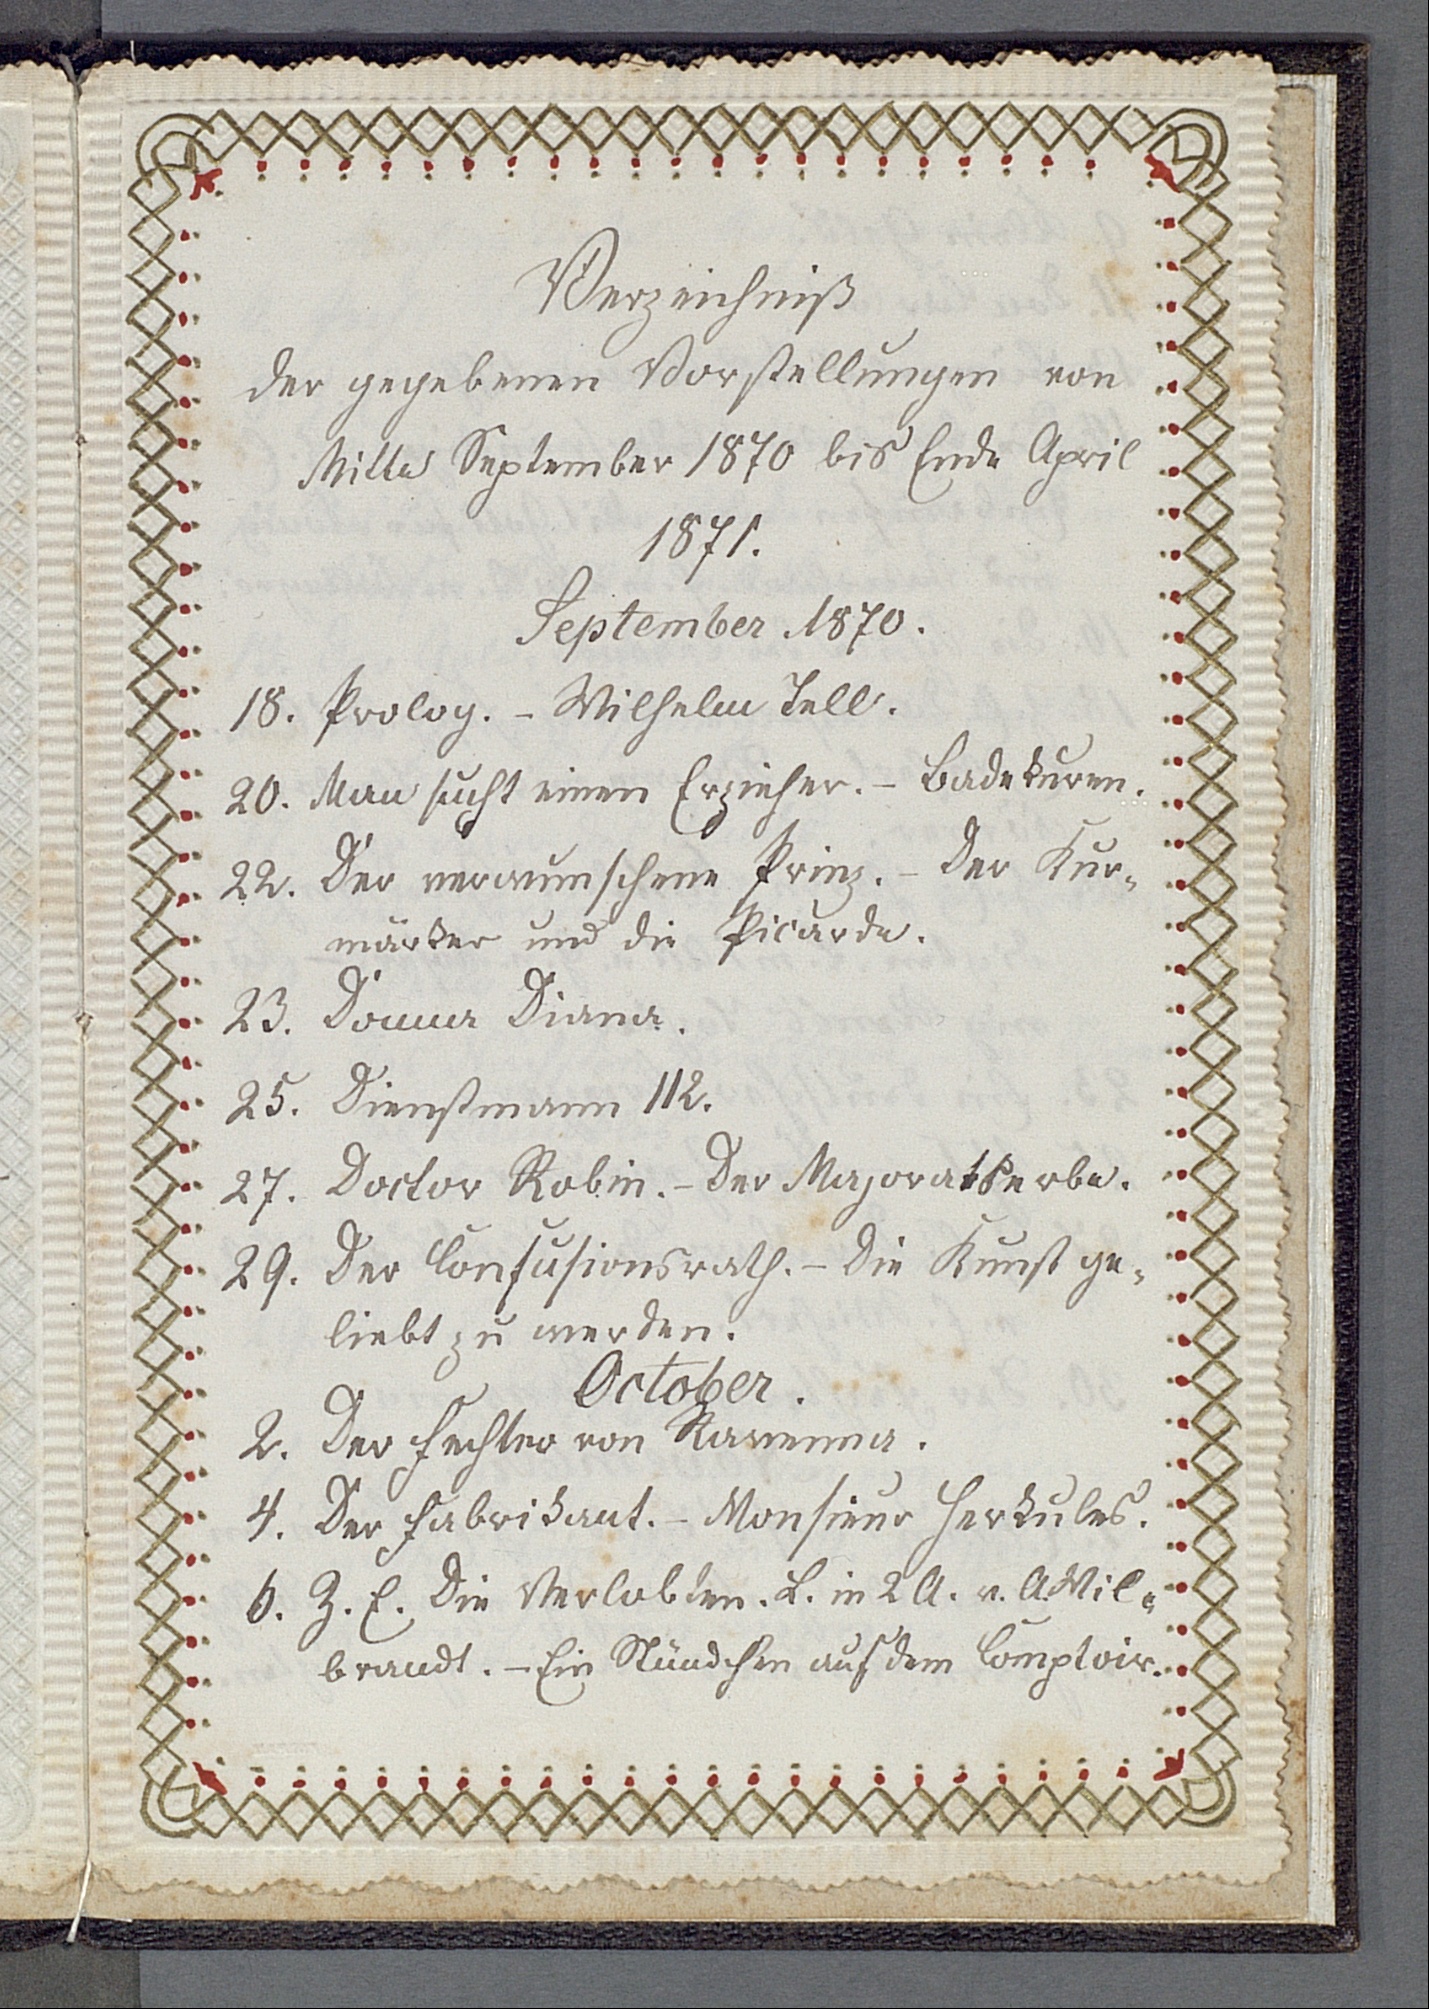 Verzeichniß
der gegebenen Vorstellungen von
Mitte September 1870 bis Ende April
1871.
September 1870.
18. Prolog. – Wilhelm Tell.
20. Man sucht einen Erzieher. – Badekuren.
22. Der verwunschene Prinz. – Der Kur-
märker und die Picarde.
23. Donna Diana.
25. Dienstmann 112.
27. Doctor Robin. – Der Majoratserbe.
29. Der Confusionsrath. – Die Kunst ge-
liebt zu werden.
October.
2. Der Fechter von Ravenna.
4. Der Fabrikant. – Monsieur Herkules.
6. Z. E. Die Verlobten. L. in 2 A. v. A. Wil-
brandt. – Ein Stündchen auf dem Comptoir.